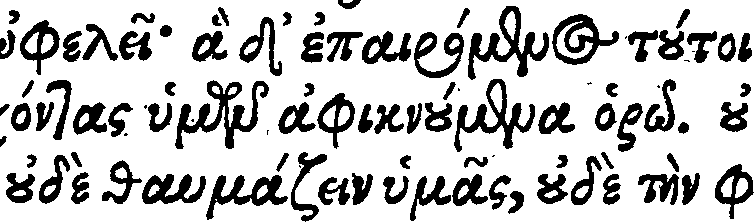 ὠφελεῖ· ἃ δ' ἐπαιρόμενος τούτοι
χόντας ἀφικνούμενα ὁρῶ. οὐ
οὐδὲ θαυμάζειν ὑμᾶς, οὐδὲ τὴν φ